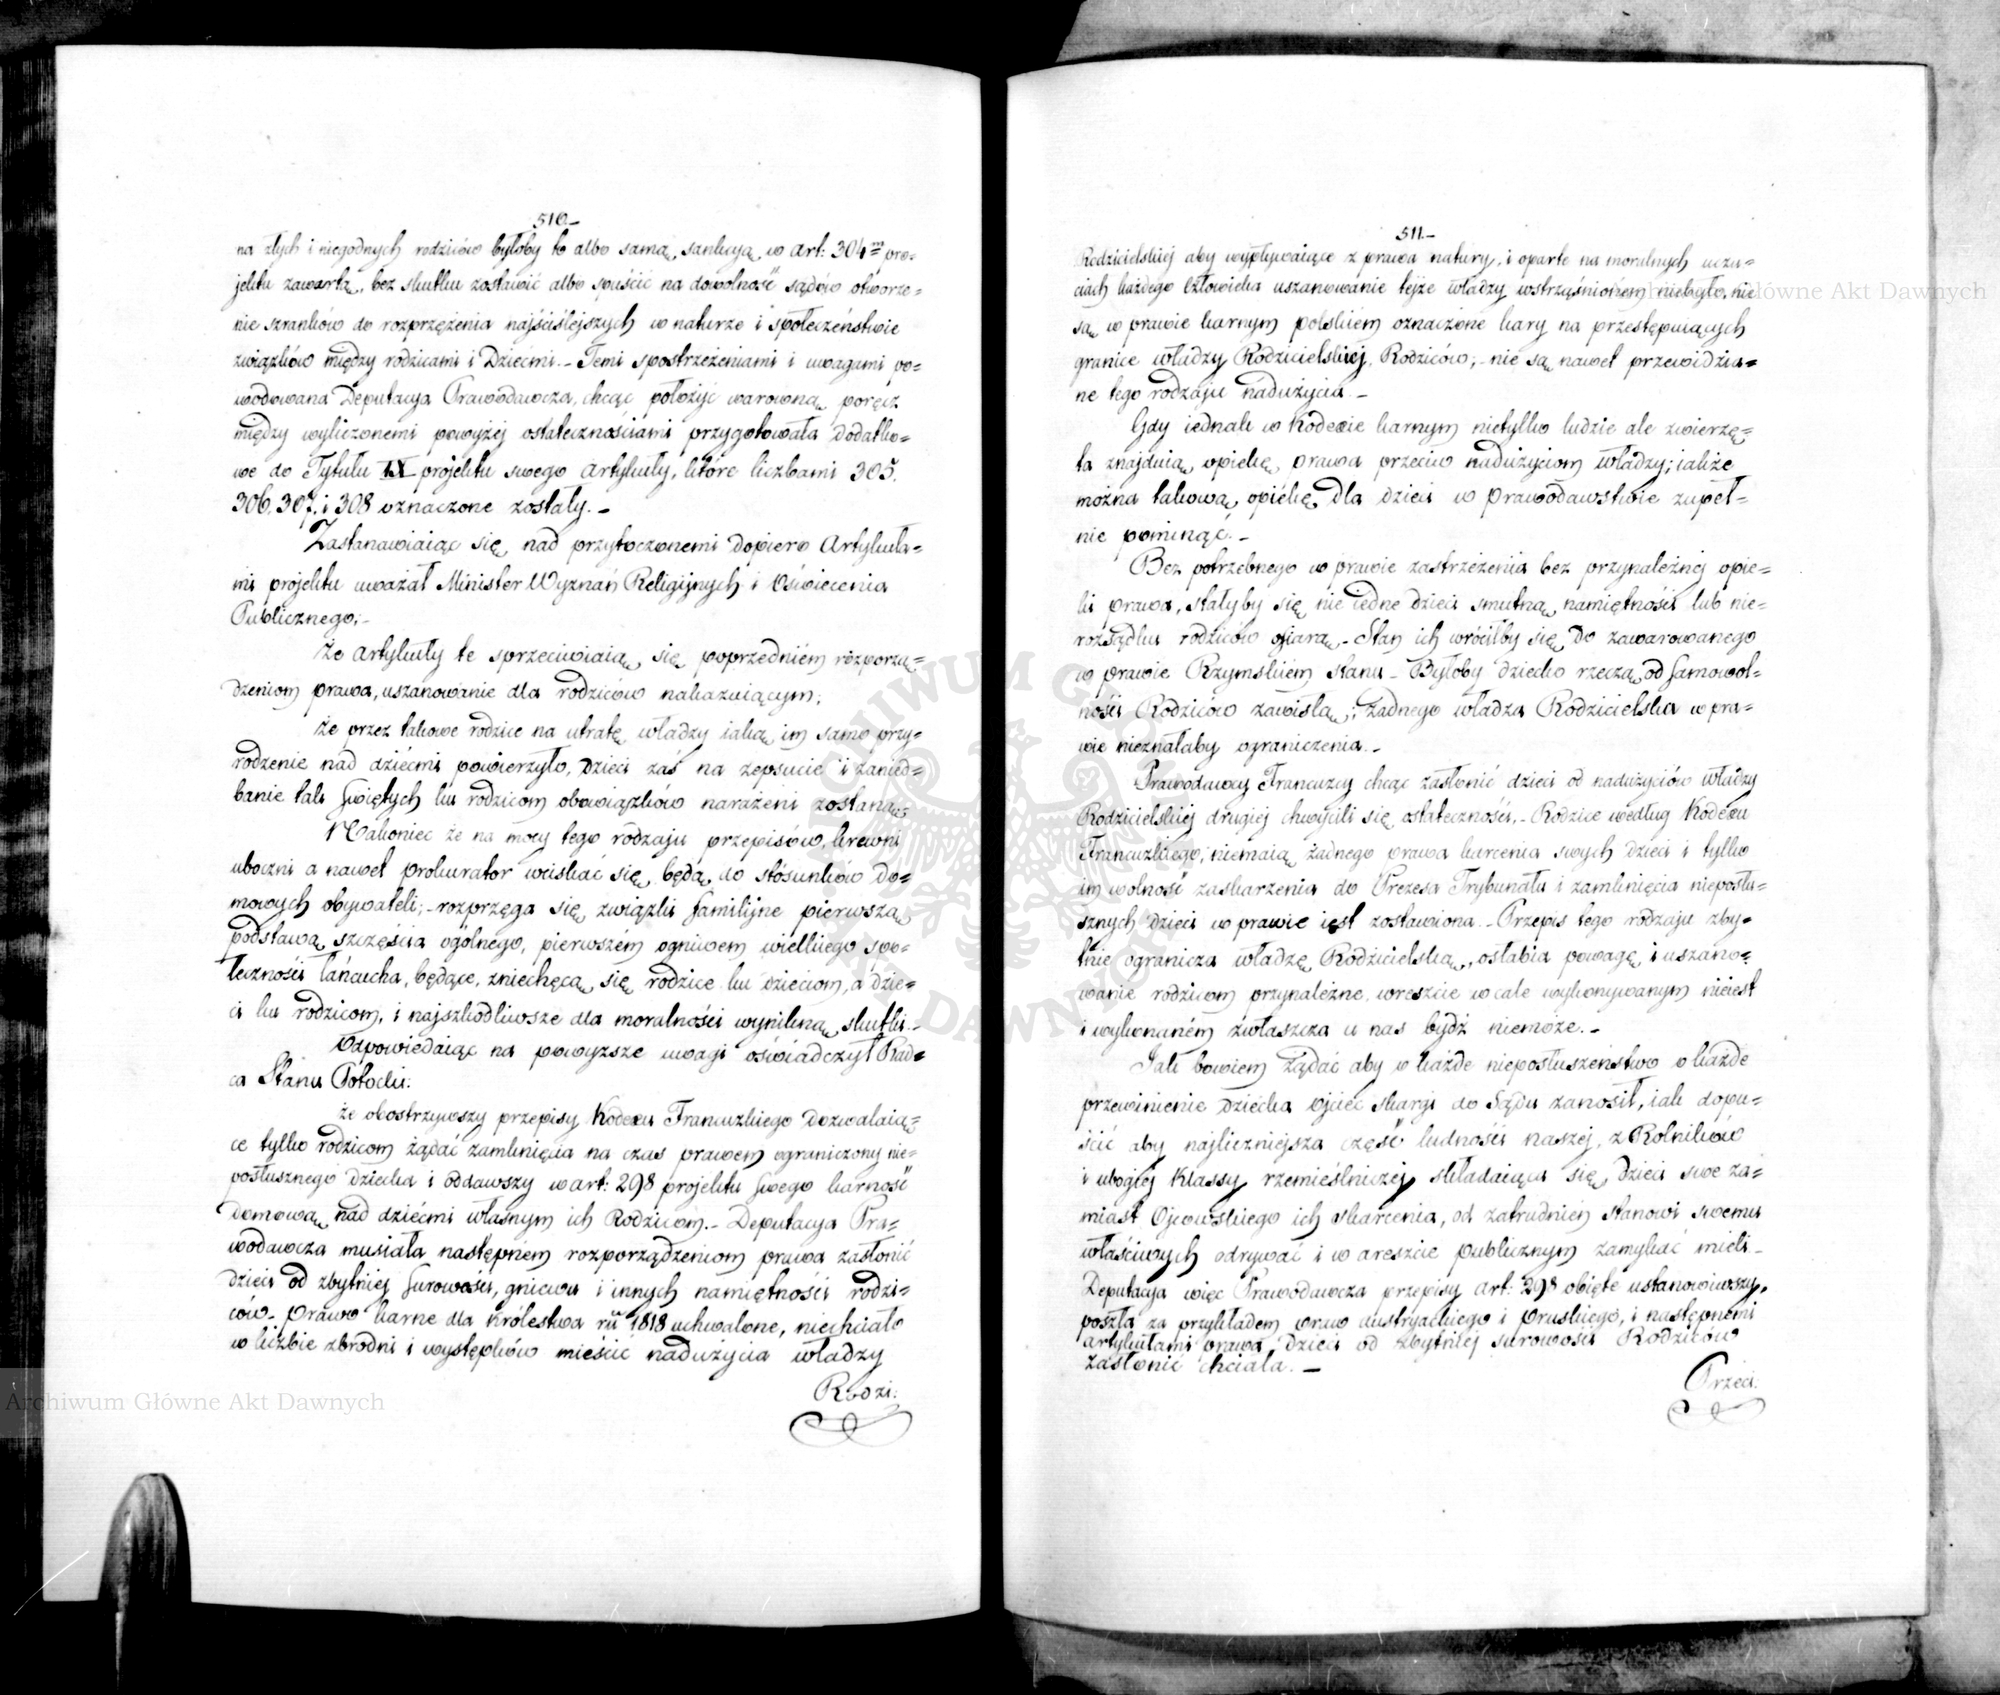 510.
na złych i niegodnych rodziców byłoby to albo samą sankcyą w art: 304m pro=
jektu zawartą, bez skutku zostawić albo spuścić na dowolność sądów otworze=
nie szranków do rozprzężenia najściślejszych w naturze i społeczeństwie
związków między rodzicami i Dziećmi. – Temi spostrzeżeniami i uwagami po=
wodowana Deputacya Prawodawcza, chcąc położyć warowną poręcz
między wyliczonemi powyżej ostatecznościami przygotowała dodatko=
we do Tytułu IX projektu swego artykuły, które liczbami 305.
306. 307. i 308 oznaczone zostały. –
Zastanawiaiąc się nad przytoczonemi dopiero Artykuła=
mi projektu uważał Minister Wyznań Religijnych i Oświecenia
Publicznego; –
Że artykuły te sprzeciwiaią się poprzedniem rozporzą=
dzeniom prawa, uszanowanie dla rodziców nakazuiącym;
Że przez takowe rodzice na utratę władzy iaką im samo przy=
rodzenie nad dziećmi powierzyło, dzieci zaś na zepsucie i zanied=
banie tak świętych ku rodzicom obowiązków narażeni zostaną
Nakoniec że na mocy tego rodzaju przepisów, krewni
uboczni a nawet prokurator wciskać się będą do stósunków do=
mowych obywateli; – rozprzęga się związki familijne pierwszą
podstawą szczęścia ogólnego, pierwszém ogniwem wielkiego spo=
łeczności łańcucha, będące, zniechęcą się rodzice ku dzieciom, a dzie=
ci ku rodzicom, i najszkodliwsze dla moralności wynikną skutki. –
Odpowiedaiąc na powyższe uwagi oświadczył Rad=
ca Stanu Potocki:
że obostrzywszy przepisy Kodexu Francuzkiego dozwalaią=
ce tylko rodzicom żądać zamknięcia na czas prawem ograniczony nie=
posłusznego dziecka i oddawszy w art: 298 projektu swego karność
domową nad dziećmi własnym ich Rodzicom. – Deputacya Pra=
wodawcza musiała następnem rozporządzeniom prawa zasłonić
dzieci od zbytniej surowości, gniewu i innych namiętności rodzi=
ców. – Prawo karne dla Królestwa ru 1818 uchwalone, niechciało
w liczbie zbrodni i występków mieścić nadużycia władzy
Rodzi:
511.
Rodzicielskiej aby wypływaiące z prawa natury, i oparte na moralnych uczu=
ciach każdego Człowieka uszanowanie tejże władzy wstrząśnionem niebyło, nie
są w prawie karnym polskiem oznaczone kary na przestępuiących
granice władzy Rodzicielskiej Rodziców; – nie są nawet przewidzia=
ne tego rodzaju nadużycia. –
Gdy iednak w Kodexie karnym nietylko ludzie ale zwierzę=
ta znajduią opiekę prawa przeciw nadużyciom władzy; iakże
można takową opiekę dla dzieci w prawodawstwie zupeł=
nie pominąć. –
Bez potrzebnego w prawie zastrzeżenia bez przynależnej opie=
ki prawa, stałyby się nie iedne dzieci smutną namiętności lub nie=
rozsądku rodziców ofiarą. – Stan ich wróciłby się do zawarowanego
w prawie Rzymskiem stanu – Byłoby dziecko rzeczą od samowol=
ności Rodziców zawisłą; żadnego władza Rodzicielska w pra=
wie nieznałaby ograniczenia. –
Prawodawcy Francuzcy chcąc zasłonić dzieci od nadużyciów władzy
Rodzicielskiej drugiej chwycili się ostateczności. – Rodzice według Kodexu
Francuzkiego, niemaią żadnego prawa karcenia swych dzieci i tylko
im wolność zaskarzenia do Prezesa Trybunału i zamknięcia nieposłu=
sznych dzieci w prawie iest zostawiona. – Przepis tego rodzaju zby=
tnie ogranicza władzę Rodzicielską, osłabia powagę i uszano=
wanie rodzicom przynależne, wreszcie wcale wykonywanym nieiest
i wykonaném zwłaszcza u nas bydź niemoże. –
Jak bowiem żądać aby w każde nieposłuszeństwo o każde
przewinienie dziecka ojciec skargi do Sądu zanosił, iak dopu=
ścić aby najliczniejsza część ludności naszej, z Rolników
i ubogiej klassy rzemieślniczej składaiąca się, dzieci swe za=
miast Ojcowskiego ich skarcenia, od zatrudnień stanowi swemu
właściwych odrywać i w areszcie publicznym zamykać mieli –
Deputacya więc Prawodawcza przepisy art: 298 obięte ustanowiwszy,
poszła za przykładem praw Austryackiego i Pruskiego, i następnemi
artykułami prawa, dzieci od zbytniej surowości Rodziców
zasłonić chciała. –
Przeci:
Archiwum Główne Akt Dawnych
Archiwum Główne Akt Dawnych
ARCHIWUM GŁÓWNE AKT DAWNYCH